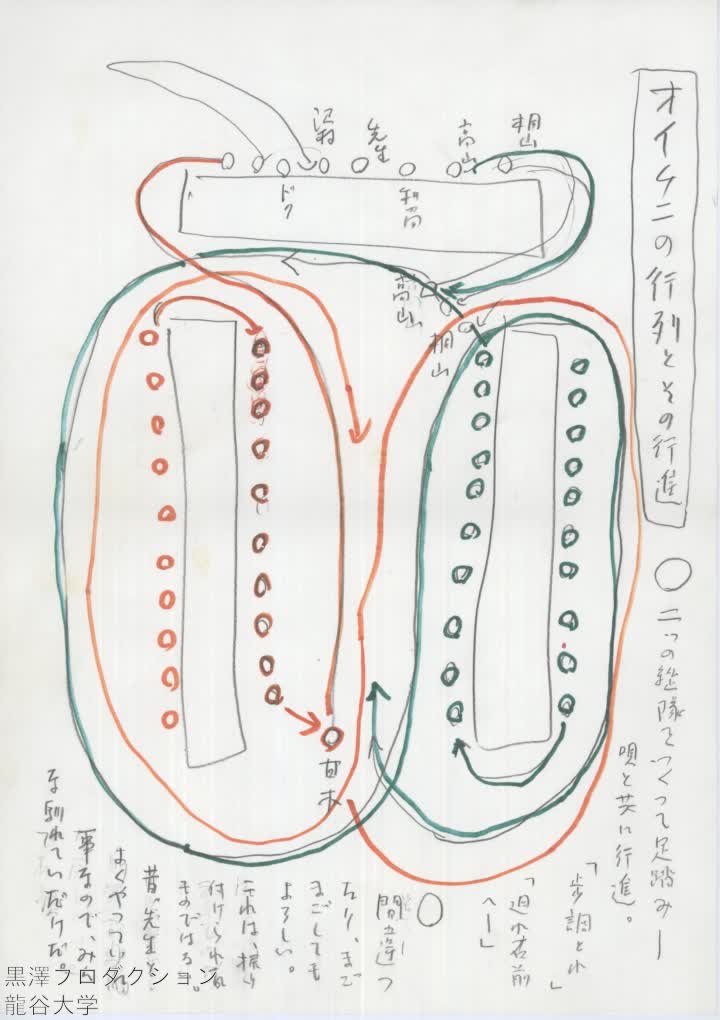 オイチニの行列とその行進
〇二つの縦隊をつくって足踏み―
唄と共に行進。
「歩調とれ」
「廻れ右前へ―」
〇間違つ
たり、まご
まごしても
よろしい。
これは、振り
付けられた
ものではなく
昔、先生と
よくやつていた
事なので、みん
な馴れているだけだ。
桐山
高山
先生
沢村
ドク
高山
桐山
甘木
黒澤プロダクション
龍谷大学